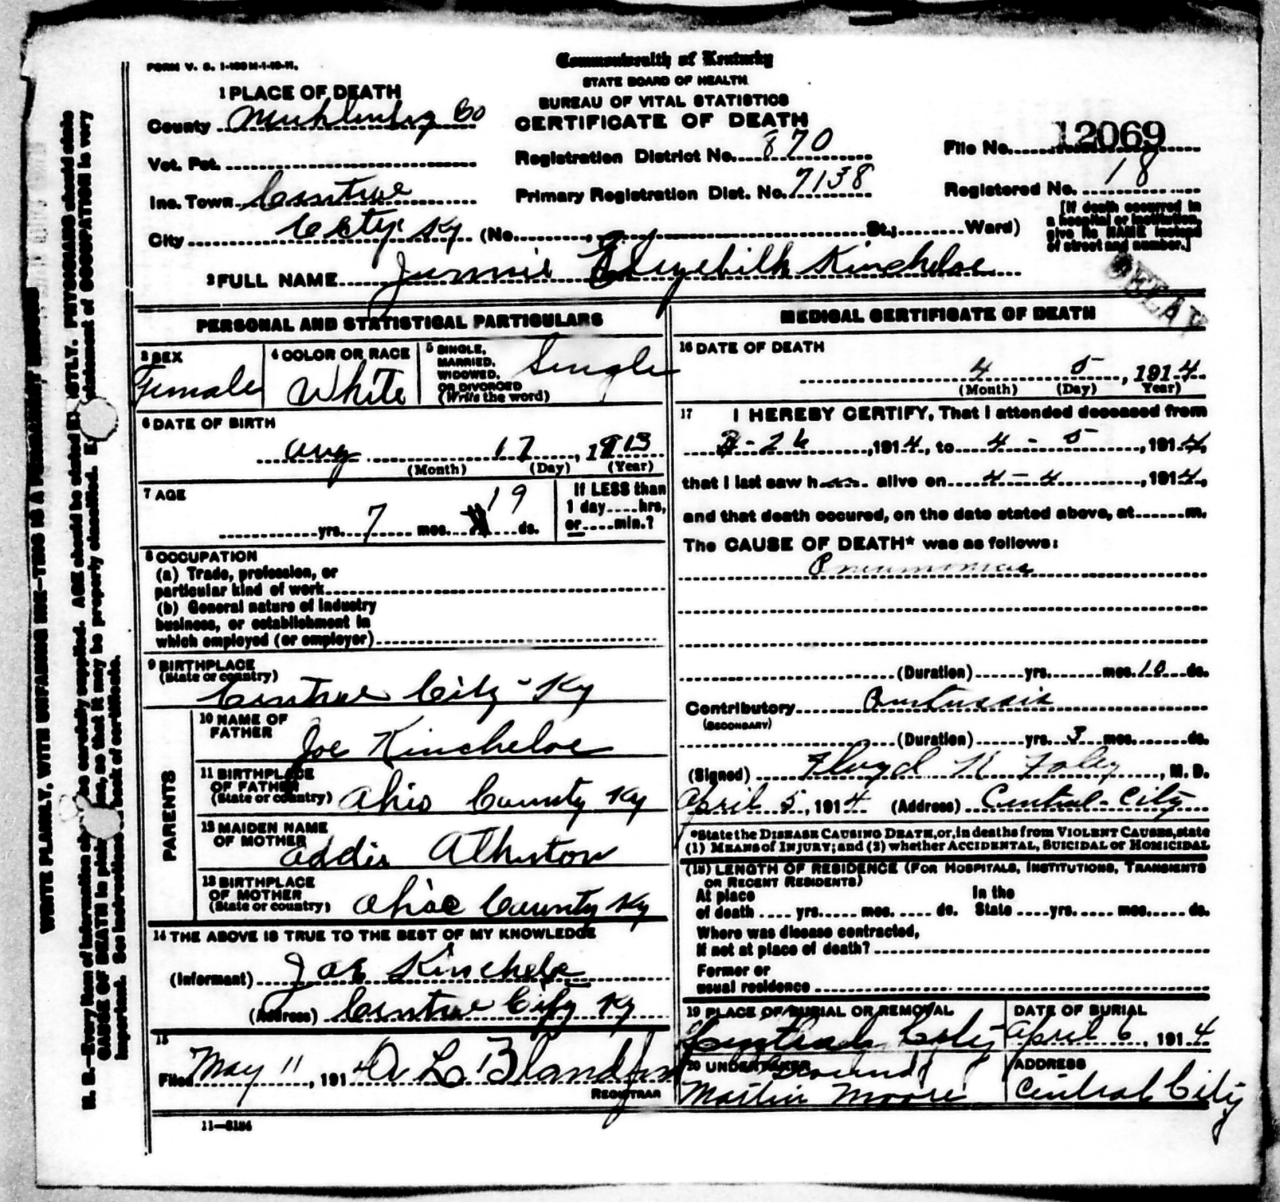 FORM V. S. 1-100M-1-10-11.
Commonwealth of Kentucky
STATE BOARD OF HEALTH
BUREAU OF VITAL STATISTICS
CERTIFICATE OF DEATH
1 PLACE OF DEATH
County Muhlenberg Co
Vot. Pct.
Inc. Town Centrae
City City Ky (No. St.; Ward)
Registration District No. 870
Primary Registration Dist. No. 7138
File No. 12069
Registered No. 18
[If death occurred in
a hospital or institution,
give its NAME instead
of street and number.]
2 FULL NAME Jennie Elizebith Kincheloe
PERSONAL AND STATISTICAL PARTICULARS
3 SEX
Female
4 COLOR OR RACE
White
5 SINGLE,
MARRIED,
WIDOWED,
OR DIVORCED
(Write the word)
Single
6 DATE OF BIRTH
Aug 17, 1913
(Month) (Day) (Year)
7 AGE
yrs. 7 mos. 19 ds.
If LESS than
1 day....hrs,
or....min.?
8 OCCUPATION
(a) Trade, profession, or
particular kind of work
(b) General nature of industry
business, or establishment in
which employed (or employer)
9 BIRTHPLACE
(State or country)
Centrae City - Ky
PARENTS
10 NAME OF
FATHER
Joe Kincheloe
11 BIRTHPLACE
OF FATHER
(State or country)
Ohio County Ky
12 MAIDEN NAME
OF MOTHER
Addie
13 BIRTHPLACE
OF MOTHER
(State or country)
Ohio County Ky
14 THE ABOVE IS TRUE TO THE BEST OF MY KNOWLEDGE
(Informant) Joe Kincheloe
(Address) Centrae City Ky
15
Filed May 11, 1914 A L Blandford
REGISTRAR
11—8184
MEDICAL CERTIFICATE OF DEATH
16 DATE OF DEATH
4 5, 1914
(Month) (Day) (Year)
17 I HEREBY CERTIFY, That I attended deceased from
3-26, 1914, to 4-5, 1914,
that I last saw h alive on 4-4, 1914,
and that death occured, on the date stated above, at m.
The CAUSE OF DEATH* was as follows:
Pneumonia
(Duration) yrs. mos. 10 ds.
Contributory Pertussis
(SECONDARY)
(Duration) yrs. 3 mos. ds.
(Signed) Floyd K Foley, M. D.
April 5, 1914 (Address) Central City
*State the DISEASE CAUSING DEATH, or, in deaths from VIOLENT CAUSES, state
(1) MEANS of INJURY; and (2) whether ACCIDENTAL, SUICIDAL or HOMICIDAL
(18) LENGTH OF RESIDENCE (FOR HOSPITALS, INSTITUTIONS, TRANSIENTS
OR RECENT RESIDENTS)
At place
of death yrs. mos. ds.
In the
State yrs. mos. ds.
Where was disease contracted,
if not at place of death?
Former or
usual residence
19 PLACE OF BURIAL OR REMOVAL
Central City
DATE OF BURIAL
April 6, 1914
20 UNDERTAKER
Martin Moore
ADDRESS
Central City
WRITE PLAINLY, WITH UNFADING INK—THIS IS A PERMANENT RECORD
N. B.—Every item of information should be carefully supplied. AGE should be stated EXACTLY. PHYSICIANS should state
CAUSE OF DEATH in plain terms, so that it may be properly classified. Exact statement of OCCUPATION is very
important. See instructions on back of certificate.